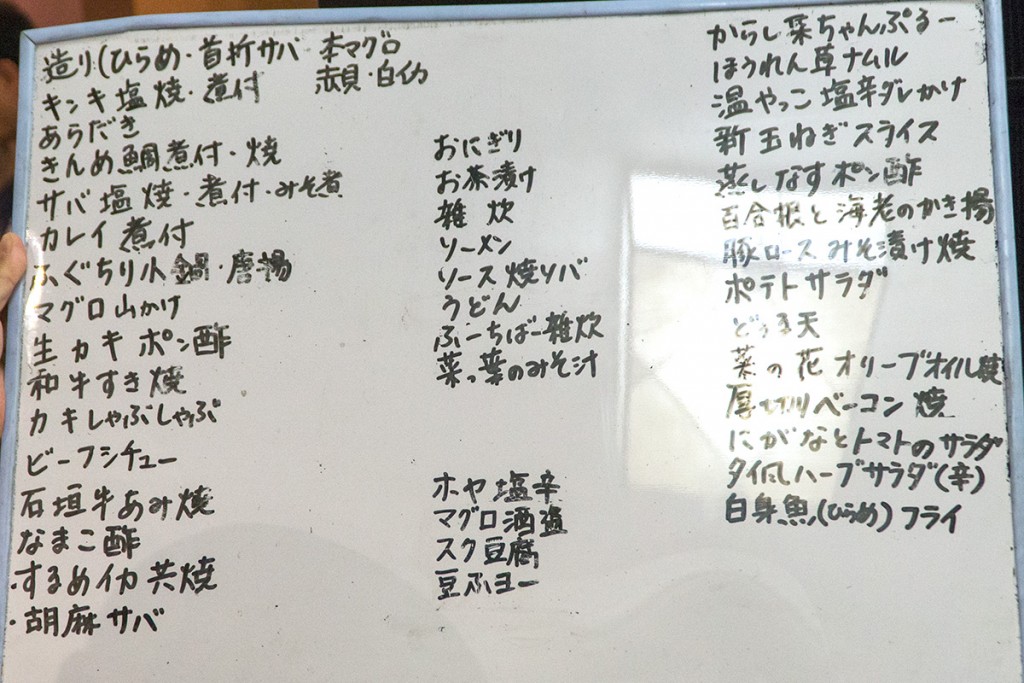 造り(ひらめ・首折サバ 本マグロ
赤貝・白イカ
キンキ塩焼・煮付
あらだき
きんめ鯛煮付・焼
サバ塩焼・煮付・みそ煮
カレイ煮付
ふぐちり小鍋・唐揚
マグロ山かけ
生カキポン酢
和牛すき焼
カキしゃぶしゃぶ
ビーフシチュー
石垣牛あみ焼
なまこ酢
・するめイカ共焼
・胡麻サバ
おにぎり
お茶漬け
雑炊
ソーメン
ソース焼ソバ
うどん
ふーちばー雑炊
菜っ葉のみそ汁
ホヤ塩辛
マグロ酒盗
スク豆腐
豆ふヨー
からし菜ちゃんぷるー
ほうれん草ナムル
温やっこ塩辛ダレかけ
新玉ねぎスライス
蒸しなすポン酢
百合根と海老のかき揚
豚ロースみそ漬け焼
ポテトサラダ
どろろ天
菜の花オリーブオイル焼
厚切りベーコン焼
にがなとトマトのサラダ
タイ風ハーブサラダ(辛)
白身魚(ひらめ)フライ